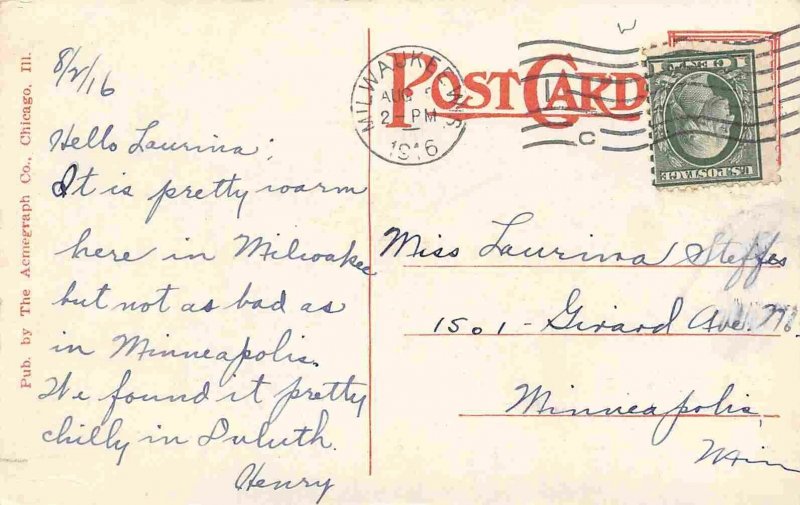 Pub. by The Acmegraph Co., Chicago, Ill.
8/2/16
Hello Laurina;
It is pretty warm
here in Milwakee
but not as bad as
in Minneapolis.
We found it pretty
chilly in Duluth.
Henry
POST CARD
MILWAUKEE WIS
AUG
2 - PM
1916
W
1
C
1 CENT 1
U.S. POSTAGE
Miss Laurina Steffes
1501 - Girard Ave. No.
Minneapolis,
Minn